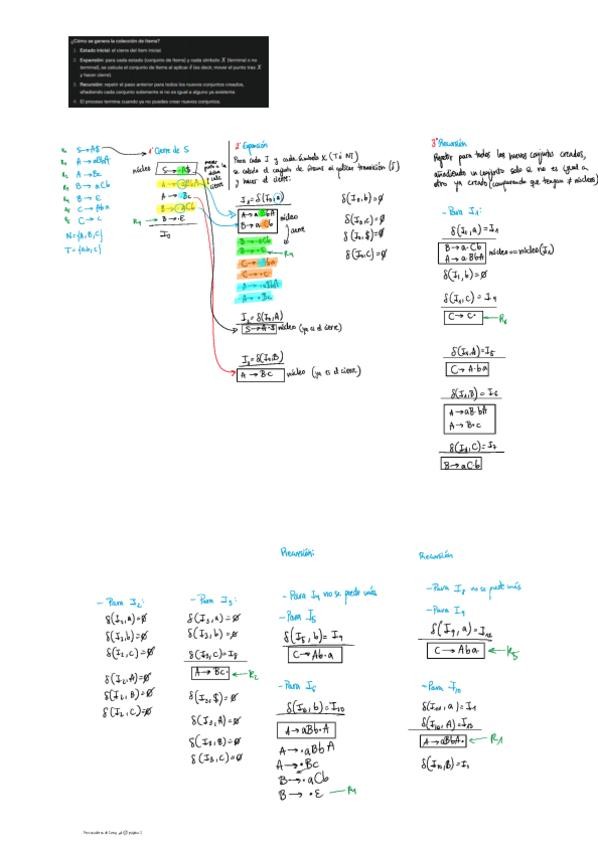 ¿Cómo se genera la colección de ítems?
1. Estado inicial: el cierre del ítem inicial
2. Expansión: para cada estado (conjunto de ítems) y cada símbolo X (terminal o no
terminal), se calcula el conjunto de ítems al aplicar δ (es decir, mover el punto tras X
y hacer cierre)
3. Recursión: repetir el paso anterior para todos los nuevos conjuntos creados,
añadiendo cada conjunto solamente si no es igual a alguno ya existente
4. El proceso termina cuando ya no puedes crear nuevos conjuntos.
S → A$
R₁ A → aBbA
R₂ A → Bc
R₃ B → aCb
R₄ B → ε
R₅ C → Aba
C → c
N = {A,B,C}
T = {a,b,c}
1º Cierre de S
núcleo S → ·A$
A → ·aBbA
A → ·Bc
B → ·aCb
R₄ B → ·ε
I₀
2º Expansión
Para cada I y cada símbolo X (T ó NT)
se calcula el conjunto de ítems al aplicar transición (δ)
y hacer el cierre:
I₁ = δ(I₀,a)
A → a·BbA
B → a·Cb
núcleo
cierre
B → ·aCb
B → ·ε
R₄
C → ·Aba
C → ·c
A → ·aBbA
A → ·Bc
δ(I₀,b) = ∅
δ(I₀,c) = ∅
δ(I₀,$) = ∅
δ(I₀,C) = ∅
I₂ = δ(I₀,A)
S → A·$ núcleo (ya es el cierre)
I₃ = δ(I₀,B)
A → B·c núcleo (ya es el cierre)
3º Recursión
Repetir para todos los nuevos conjuntos creados,
añadiendo un conjunto solo si no es igual a
otro ya creado (comparando que tengan ≠ núcleos)
- Para I₁:
δ(I₁,a) = I₁
B → a·Cb
A → a·BbA
núcleo == núcleo(I₁)
δ(I₁,b) = ∅
δ(I₁,c) = I₄
C → c· ← R₆
δ(I₁,A) = I₅
C → A·ba
δ(I₁,B) = I₆
A → aB·bA
A → B·c
δ(I₁,C) = I₇
B → aC·b
- Para I₂:
δ(I₂,a) = ∅
δ(I₂,b) = ∅
δ(I₂,c) = ∅
δ(I₂,A) = ∅
δ(I₂,B) = ∅
δ(I₂,C) = ∅
- Para I₃:
δ(I₃,a) = ∅
δ(I₃,b) = ∅
δ(I₃,c) = I₈
A → Bc· ← R₂
δ(I₃,$) = ∅
δ(I₃,A) = ∅
δ(I₃,B) = ∅
δ(I₃,C) = ∅
Recursión:
- Para I₄ no se puede más
- Para I₅
δ(I₅,b) = I₉
C → Ab·a
- Para I₆
δ(I₆,b) = I₁₀
A → aBb·A
A → ·aBbA
A → ·Bc
B → ·aCb
B → ·ε — R₄
Recursión
- Para I₈ no se puede más
- Para I₉
δ(I₉,a) = I₁₂
C → Aba· ← R₅
- Para I₁₀
δ(I₁₀,a) = I₁
δ(I₁₀,A) = I₁₃
A → aBbA· ← R₁
δ(I₁₀,B) = I₃